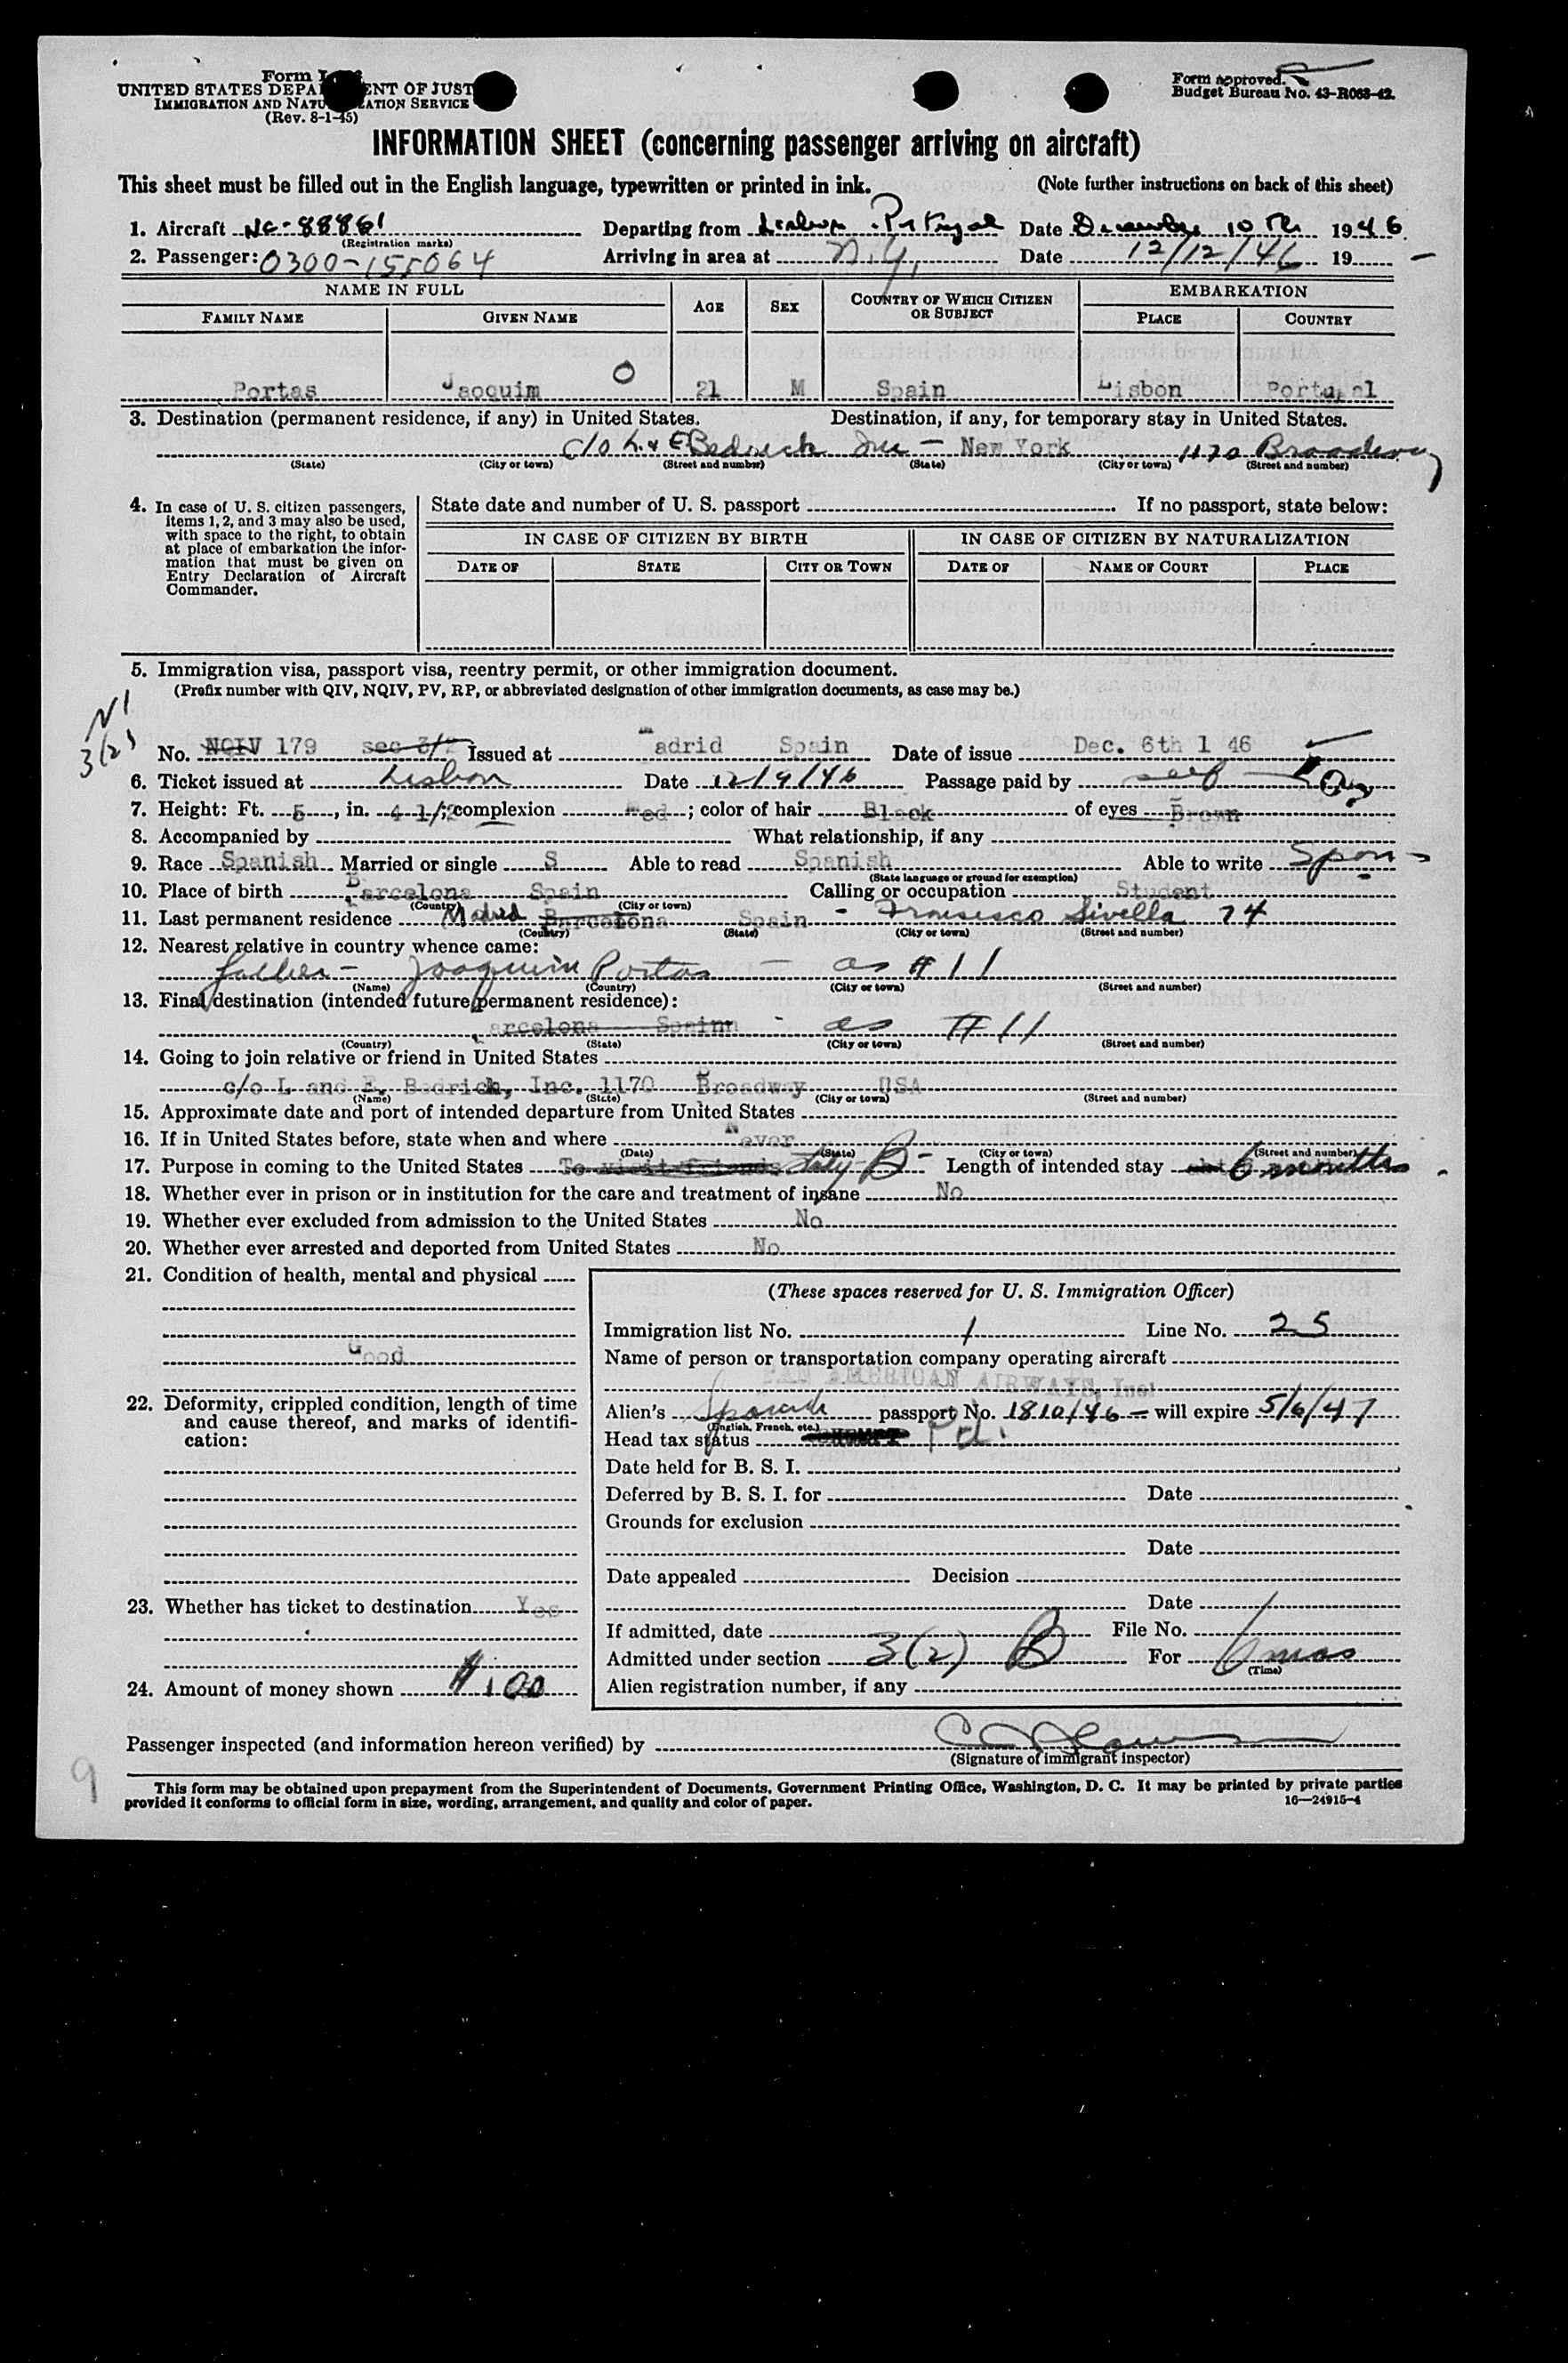 Form I-
UNITED STATES DEPARTMENT OF JUST
IMMIGRATION AND NATURALIZATION SERVICE
(Rev. 8-1-45)
Form approved.
Budget Bureau No. 43-R063-42.
INFORMATION SHEET (concerning passenger arriving on aircraft)
This sheet must be filled out in the English language, typewritten or printed in ink. (Note further instructions on back of this sheet)
1. Aircraft NC-88861 Departing from Lisbon Portugal Date December 10 th 1946
(Registration marks)
2. Passenger: 0300-155064 Arriving in area at N.Y. Date 12/12/46 19
NAME IN FULL AGE SEX COUNTRY OF WHICH CITIZEN OR SUBJECT EMBARKATION
FAMILY NAME GIVEN NAME PLACE COUNTRY
Portas Jaoquim O 21 M Spain Lisbon Portugal
3. Destination (permanent residence, if any) in United States. Destination, if any, for temporary stay in United States.
C/o L. & E Bedrich Inc - New York 1170 Broadway
(State) (City or town) (Street and number) (State) (City or town) (Street and number)
4. In case of U. S. citizen passengers, items 1, 2, and 3 may also be used, with space to the right, to obtain at place of embarkation the information that must be given on Entry Declaration of Aircraft Commander.
State date and number of U. S. passport If no passport, state below:
IN CASE OF CITIZEN BY BIRTH IN CASE OF CITIZEN BY NATURALIZATION
DATE OF STATE CITY OR TOWN DATE OF NAME OF COURT PLACE
5. Immigration visa, passport visa, reentry permit, or other immigration document.
(Prefix number with QIV, NQIV, PV, RP, or abbreviated designation of other immigration documents, as case may be.)
3(2)
No. NQIV 179 sec 3/2 Issued at Madrid Spain Date of issue Dec. 6th 1 46
6. Ticket issued at Lisbon Date 12/9/46 Passage paid by self
7. Height: Ft. 5, in. 4 1/2; complexion med; color of hair Black of eyes Brown
8. Accompanied by What relationship, if any
9. Race Spanish Married or single S Able to read Spanish Able to write Span
(State language or ground for exemption)
10. Place of birth Barcelona Spain Calling or occupation Student
(Country) (City or town)
11. Last permanent residence Madrid Barcelona Spain - Fransisco Sivella 74
(Country) (State) (City or town) (Street and number)
12. Nearest relative in country whence came:
father - Joaquin Portas - as #11
(Name) (Country) (City or town) (Street and number)
13. Final destination (intended future permanent residence):
arcelona Spain as #11
(Country) (State) (City or town) (Street and number)
14. Going to join relative or friend in United States
c/o L and E. Bedrich, Inc. 1170 Broadway USA
(Name) (State) (City or town) (Street and number)
15. Approximate date and port of intended departure from United States
16. If in United States before, state when and where Never
(Date) (State) (City or town) (Street and number)
17. Purpose in coming to the United States To visit friends B- Length of intended stay 6 months
18. Whether ever in prison or in institution for the care and treatment of insane No
19. Whether ever excluded from admission to the United States No
20. Whether ever arrested and deported from United States No
21. Condition of health, mental and physical
Good
22. Deformity, crippled condition, length of time and cause thereof, and marks of identification:
23. Whether has ticket to destination Yes
24. Amount of money shown $100
(These spaces reserved for U. S. Immigration Officer)
Immigration list No. 1 Line No. 25
Name of person or transportation company operating aircraft
PAN AMERICAN AIRWAYS, Inc.
Alien's Spanish passport No. 1810/46 - will expire 5/6/47
(English, French, etc.)
Head tax status Pd.
Date held for B. S. I.
Deferred by B. S. I. for Date
Grounds for exclusion
Date
Date appealed Decision
Date
If admitted, date File No.
Admitted under section 3(2) B For 6 mos
(Time)
Alien registration number, if any
Passenger inspected (and information hereon verified) by
(Signature of immigrant inspector)
9
This form may be obtained upon prepayment from the Superintendent of Documents, Government Printing Office, Washington, D. C. It may be printed by private parties
provided it conforms to official form in size, wording, arrangement, and quality and color of paper. 16—24915-4